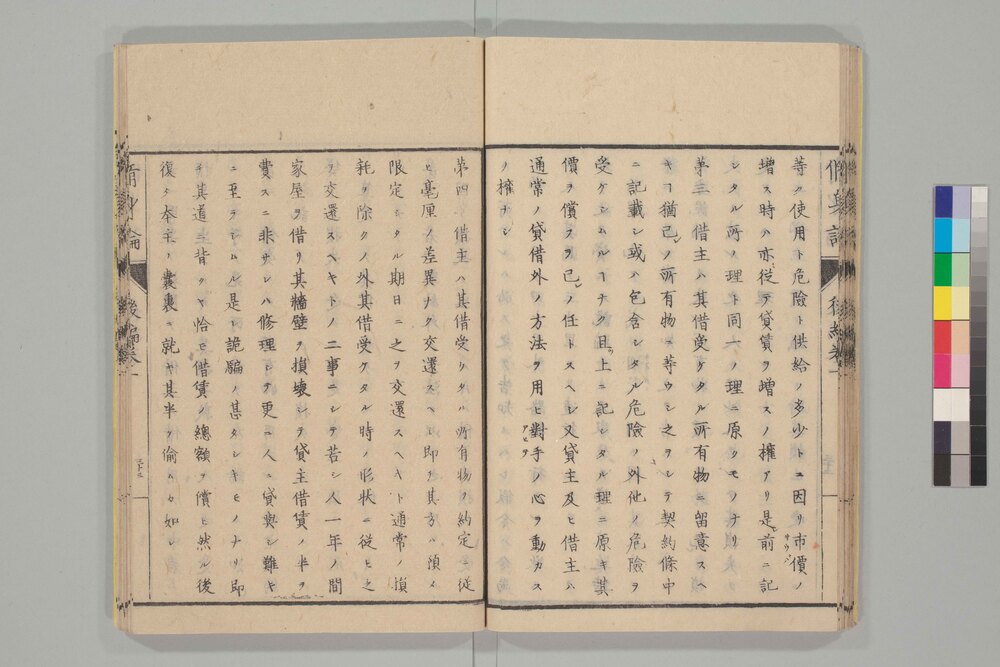 等ク使用ト危險ト供給ノ多少トニ因リ市價ノ
増ス時ハ亦從テ貸賃ヲ増スノ權アリ是前ニ記
シタル所ノ理ト同一ノ理ニ原クモノナリ
第三 借主ハ其借受ケタル所有物ニ留意スヘ
キヿ猶己ノ所有物ニ等ウシ之ヲシテ契約條中
ニ記載シ或ハ包含シタル危險ノ外他ノ危險ヲ
受ケシムルヿナク且上ニ記シタル理ニ原キ其
價ヲ償フヲ己ノ任トスヘシ又貸主及ヒ借主ハ
通常ノ貸借外ノ方法ヲ用ヒ對手ノ心ヲ動カス
ノ權ナシ
第四 借主ハ其借受ケタル所有物ヲ約定ニ從
ヒ毫厘ノ差異ナク交還スヘシ即チ其方ハ須メ
限定シタル期日ニ之ヲ交還スヘキト通常ノ損
耗ヲ除クノ外其借受ケタル時ノ形状ニ從ヒ之
ヲ交還スヘキトノ二事ニシテ若シ人一年ノ間
家屋ヲ借リ其墻壁ヲ損壞シテ貸主借賃ノ半ヲ
費スニ非サレハ修理シテ更ニ人ニ貸與シ難キ
ニ至ラシムル是レ詭騙ノ甚タシキモノナリ即
チ其道ニ背クヤ恰モ借賃ノ總額ヲ償ヒ然ル後
復タ本主ノ嚢裏ニ就キ其半ヲ偷ムカ如シ
脩身論 後編卷一